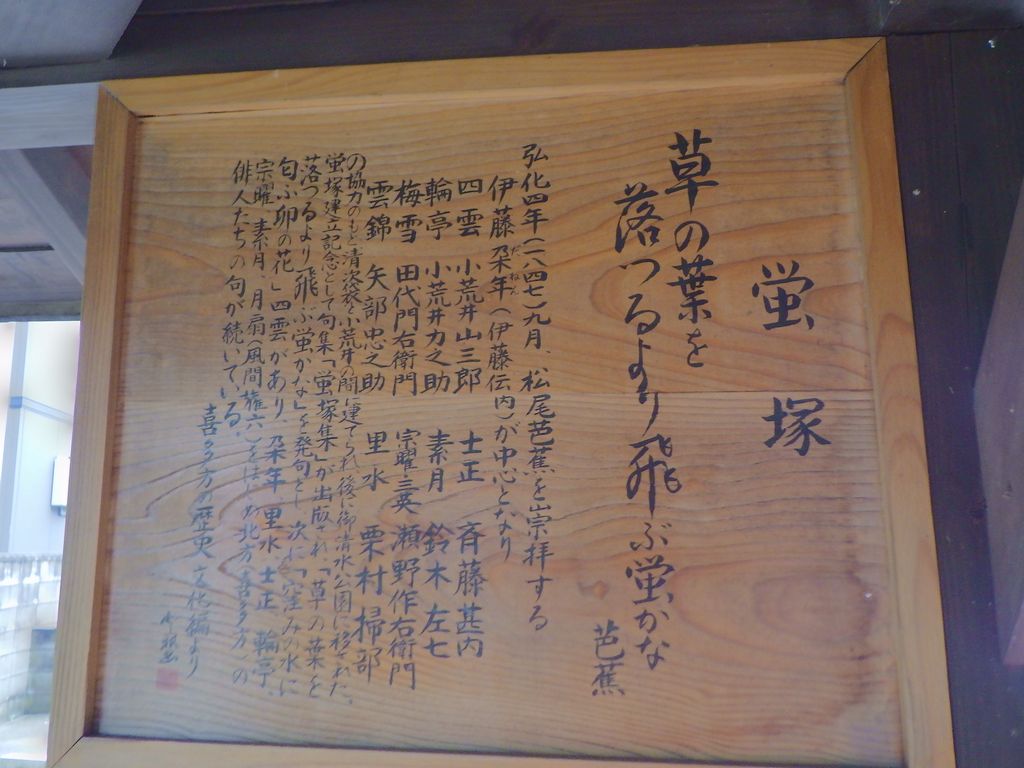 蛍塚
草の葉を
落つるより飛ぶ蛍かな
芭蕉
弘化四年(一八四七)九月、松尾芭蕉を崇拝する
伊藤朶年(伊藤伝内)が中心となり
四雲 小荒井山三郎 士正 斉藤甚内
輪亭 小荒井力之助 素月 鈴木左七
梅雪 田代門右衛門 宗曜 三英 瀬野作右衛門
雲錦 矢部忠之助 里水 栗村掃部
の協力のもと清次袋と小荒井の間に建てられ後に御清水公園に移された。
蛍塚建立記念として句集「蛍塚集」が出版され「草の葉を
落つるより飛ぶ蛍かな」を発句とし 次に「窪みの水に
匂ふ卯の花」四雲があり、朶年、里水、士正、輪亭、
宗曜、素月、月扇(風間権六)をはじめ北方・喜多方の
俳人たちの句が続いている。
喜多方の歴史 文化編より